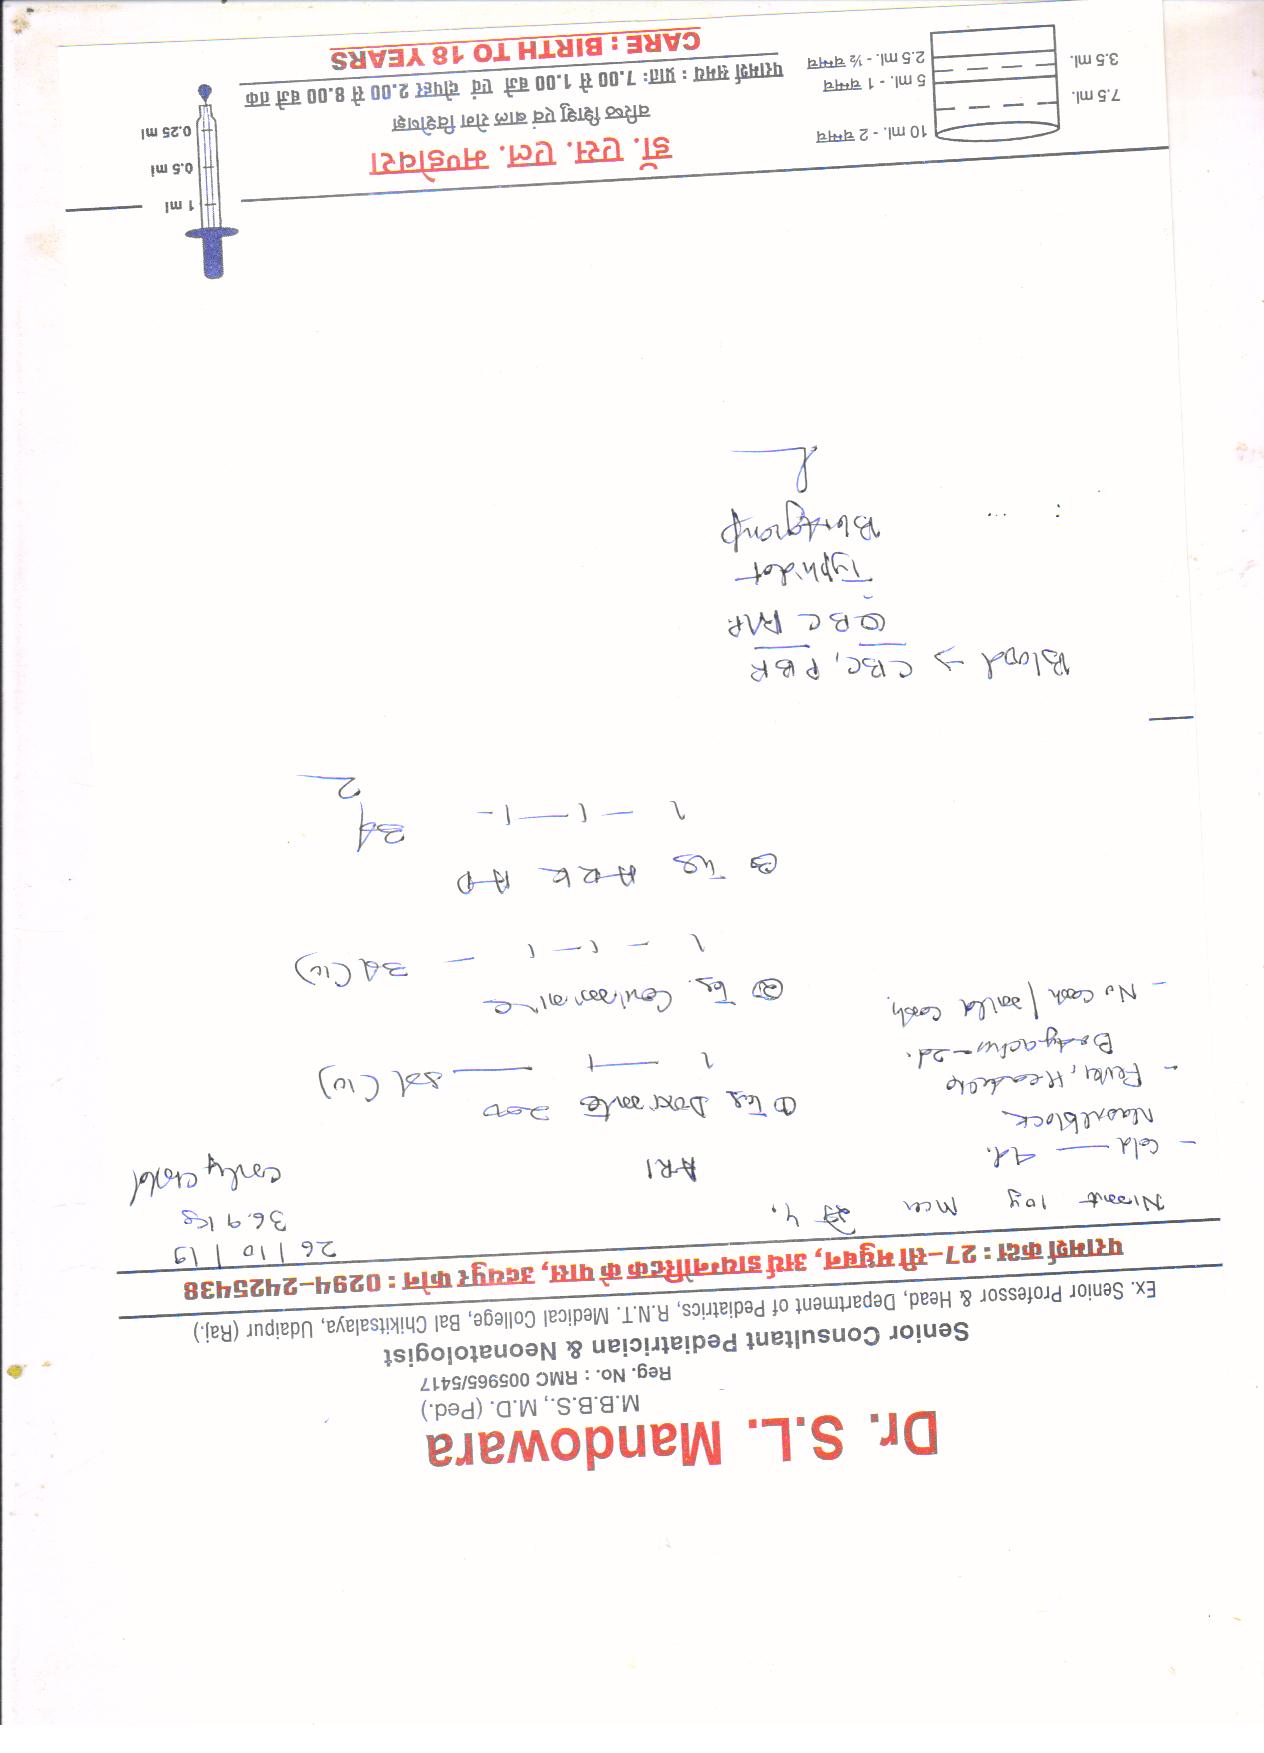 Dr. S.L. Mandowara
M.B.B.S., M.D. (Ped.)
Reg. No. : RMC 005965/5417
Senior Consultant Pediatrician & Neonatologist
Ex. Senior Professor & Head, Department of Pediatrics, R.N.T. Medical College, Bal Chikitsalaya, Udaipur (Raj.)
परामर्श कक्ष : 27-सी मधुबन, आर्य डायग्नोस्टिक के पास, उदयपुर फोन : 0294-2425438
26 | 10 | 19
10y
36.9 kg
ARI
Cold — 4d.
Nasal block
- Fever, Headache
Bodyaches - 2d.
- No cash / mild cash.
① 200
1 — 1 — 5d (10)
②
1 - 1 - 1 - 3d (10)
③
1 - 1 - 1 - 3d
Blood → CBC, PBF
QBC RMP
Typhidot
Blood group
डॉ. एस. एल. मण्डोवरा
वरिष्ठ शिशु एवं बाल रोग विशेषज्ञ
परामर्श समय : प्रातः 7.00 से 1.00 बजे एवं दोपहर 2.00 से 8.00 बजे तक
CARE : BIRTH TO 18 YEARS
10 ml. - 2 चम्मच
7.5 ml.
5 ml. - 1 चम्मच
3.5 ml.
2.5 ml. - ½ चम्मच
1 ml
0.5 ml
0.25 ml